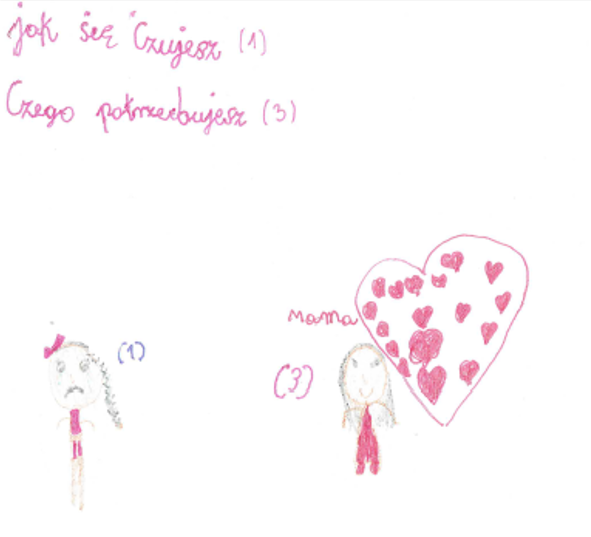 jak się Czujesz (1)
Czego potrzebujesz (3)
mama
(1)
(3)